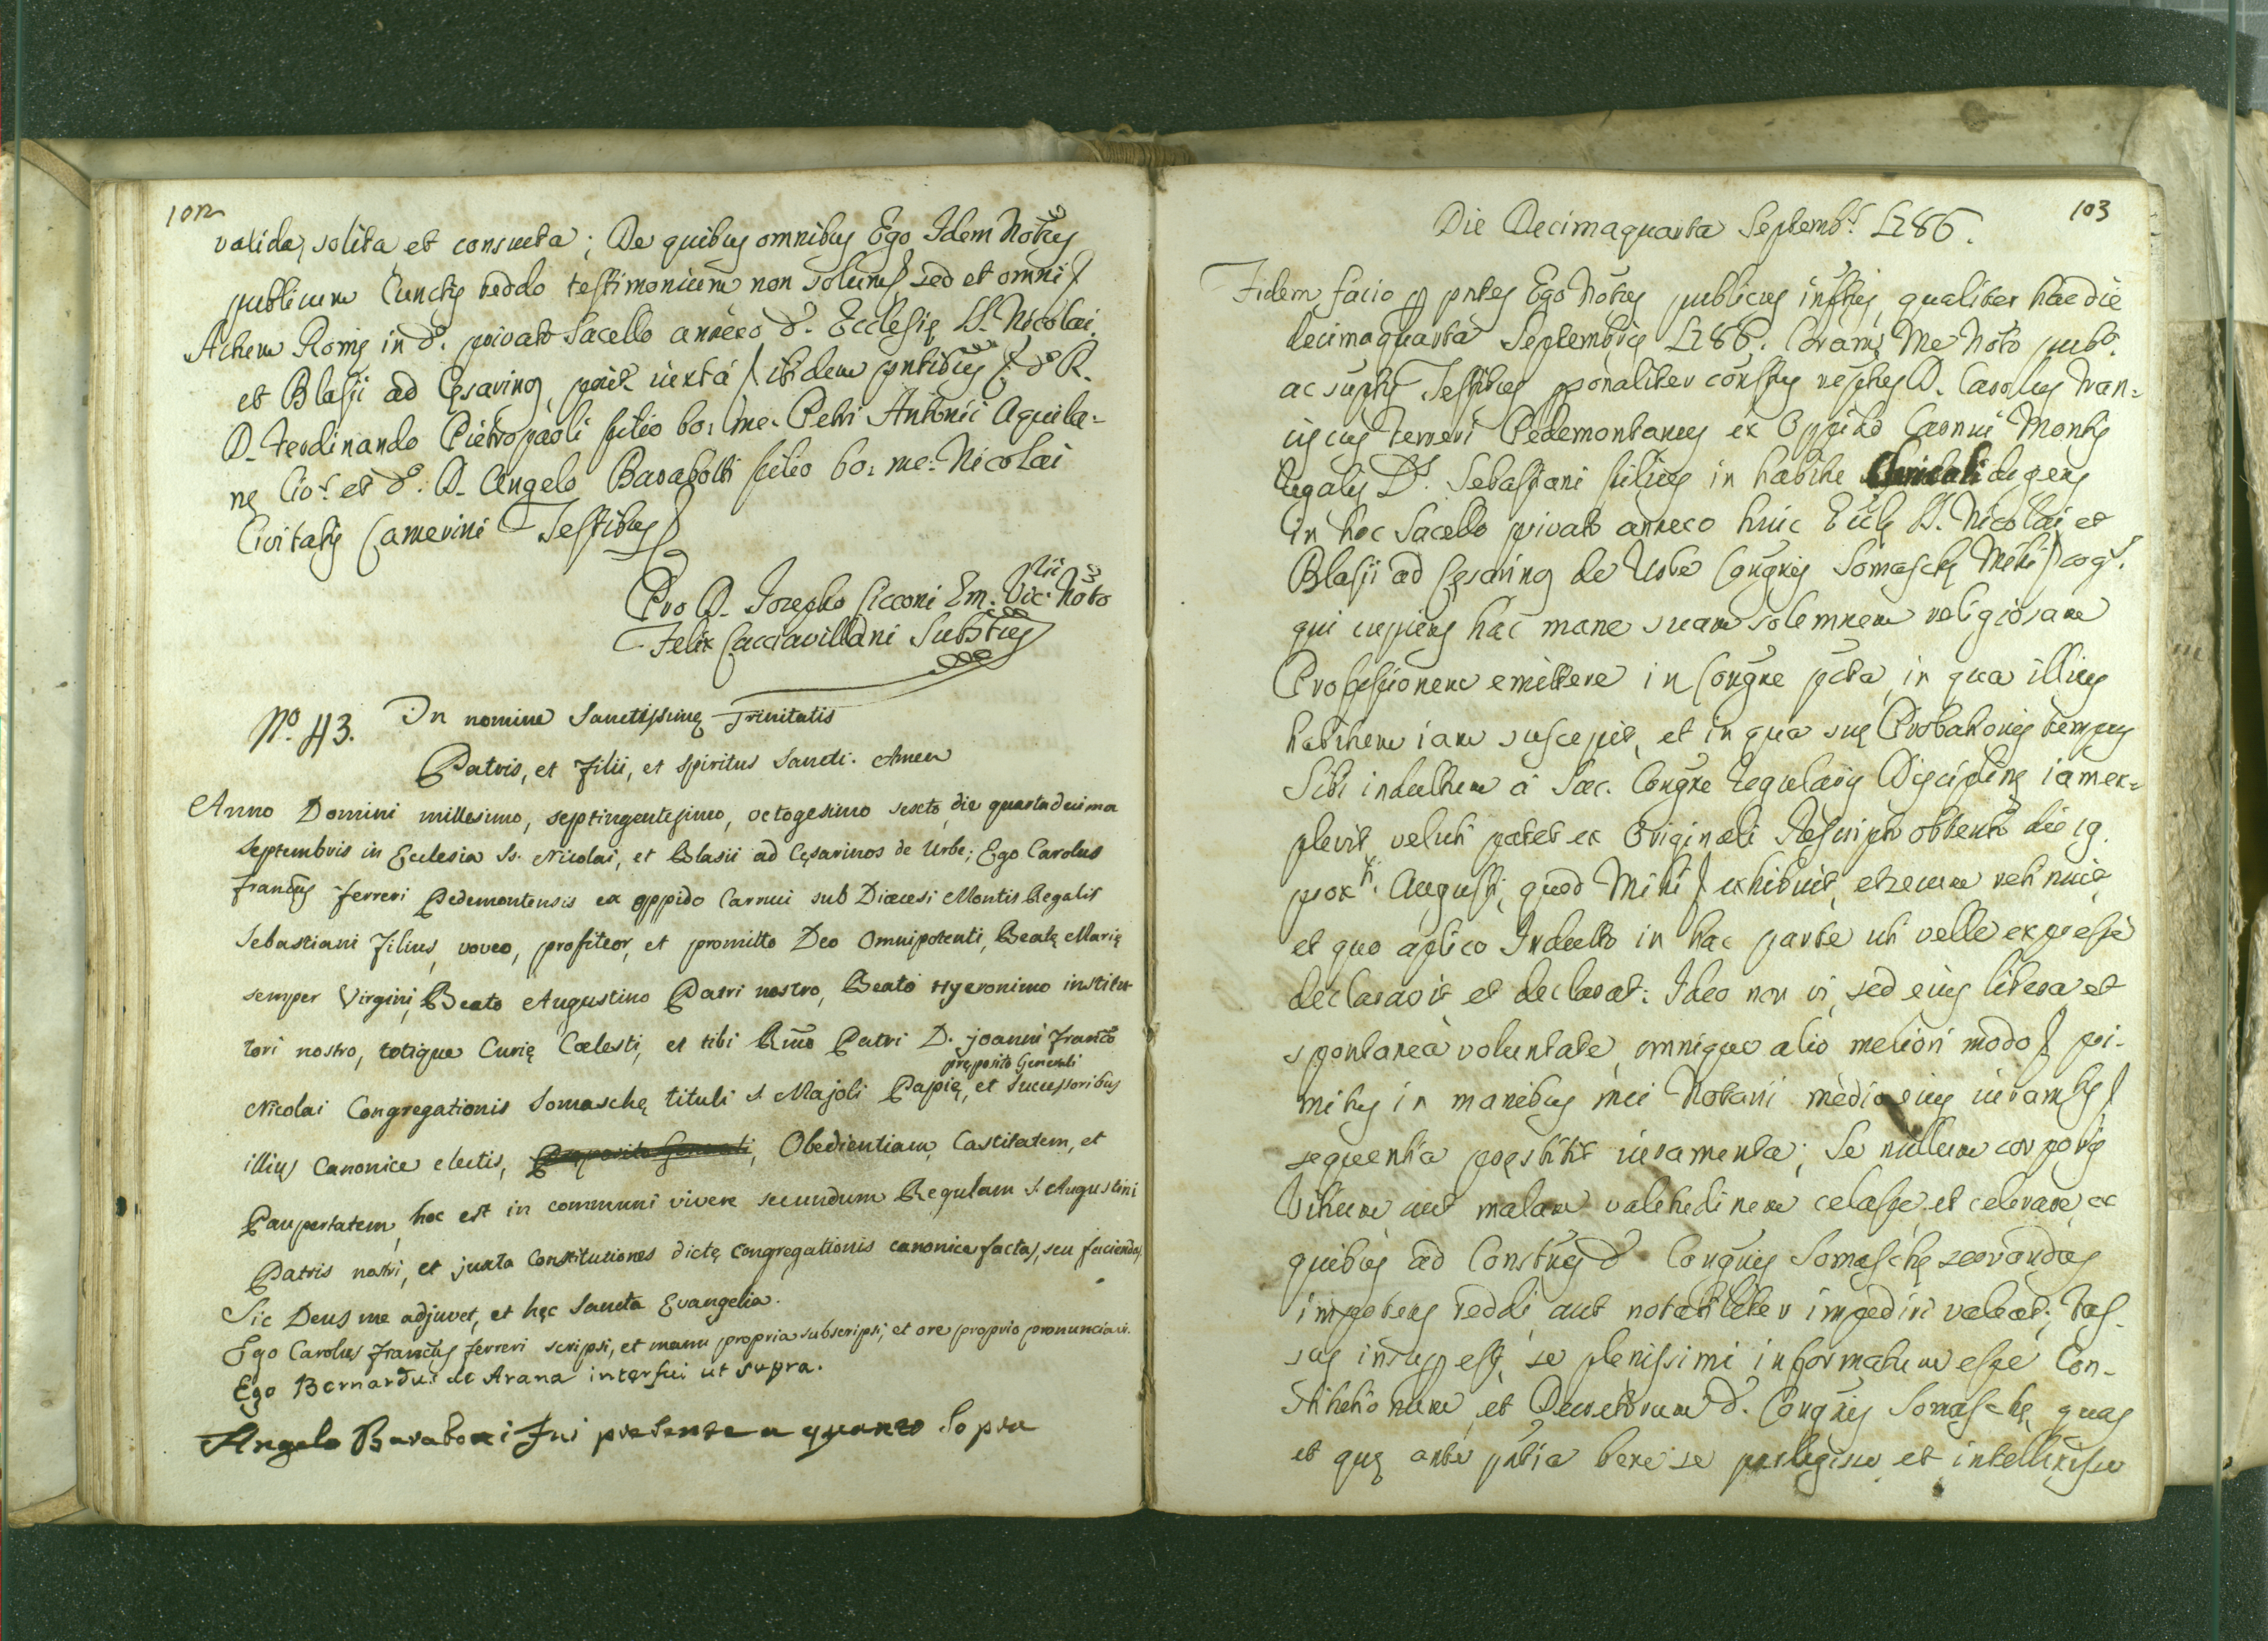 102
valida, solita, et consueta; De quibus omnibus Ego Idem Notũs
publicum Cunctis reddo testimonium non solum sed et omni
Actum Romę in d. privato Sacello annexo d. Ecclesię SS. Nicolai
et Blasii ad Cęsarinos, iuxta ibidem pntibus d. R.
D. Ferdinando Pietropaoli filio bo: me: Petri Antonii Aquila-
nę Civ.s et d. D. Angelo Barabotti filio bo: me: Nicolai
Civitatis Camerini Testibus
Pro D. Josepho Cicconi Em. Vic. Noto
Felix Cacciavillani Substus
No. 43. In nomine Sanctissimę Trinitatis
Patris, et Filii, et Spiritus Sancti. Amen
Anno Domini millesimo, septingentesimo, octogesimo sexto, die quartadecima
Septembris in Ecclesia Ss. Nicolai, et Blasii ad Cęsarinos de Urbe; Ego Carolus
Francus Ferreri Pedemontensis ex oppido Carrui sub Diœcesi Montis Regalis
Sebastiani Filius, voveo, profiteor, et promitto Deo Omnipotenti, Beatę Marię
semper Virgini, Beato Augustino Patri nostro, Beato Hyeronimo institu-
tori nostro, totique Curię Cœlesti, et tibi Rmo Patri D. Joanni Franco
pręposito Generali
Nicolai Congregationis Somaschę tituli S. Majoli Papię, et Successoribus
illius Canonice electis, Pręposito Generali, Obedientiam, Castitatem, et
Paupertatem, hoc est in communi vivere secundum Regulam S. Augustini
Patris nostri, et juxta Constitutiones dictę Congregationis canonice factas, seu faciendas
Sic Deus me adjuvet, et hęc Sancta Evangelia.
Ego Carolus Francus Ferreri scripsi, et manu propria subscripsi, et ore proprio pronunciavi.
Ego Bernardus de Arana interfui ut supra.
Angelo Baraboti Fui presente a quanto Sopra
103
Die Decimaquarta Septemb.s 1786.
Fidem facio p pntes Ego Notũs publicus inftus, qualiter hac die
decimaquarta Septembris 1786. Coram Me Noto pubo.
ac supttis Testibus psonaliter constus D. Carolus Fran-
ciscus Ferreri Pedemontanus ex Oppido Carrui Montis
Regalis D. Sebastiani filius in habitu Clericali degens
in hoc Sacello privato annexo huic Ecclę SS. Nicolai et
Blasii ad Cęsarinos de Urbe Congnis Somaschę Mihi cog.s
qui cupiens hac mane suam solemnem religiosam
Professionem emittere in Congne pcta, in qua illius
habitum iam suscepit, et in qua suę Probationis tempus
Sibi indultum à Sac. Congne Regularis Disciplinę iam ex-
plevit, veluti patet ex Originali Rescripto obtento die 19.
prox.i Augusti, quod Mihi exhibuit, et secum retinuit
et quo aplico Indulto in hac parte uti velle expresse
declaravit, et declarat: Ideo non vi, sed eius libera et
spontanea voluntate, omnique alio meliori modo pri-
mitus in manibus mei Notarii medio eius iuramto
sequentia pręstitit iuramenta; Se nullum corporis
Vitium aut malam valetudinem celasse et celevare, ex
quibus ad Constnes d. Congnis Somaschę servandas
impotens reddi, aut notabiliter impediri valeat; Ias-
sus insup est, se plenissimi informatum esse Con-
stitutionum, et Decretorum d. Congnis Somaschę, quas
et quę ante pntia bene se perlegisse et intellexisse